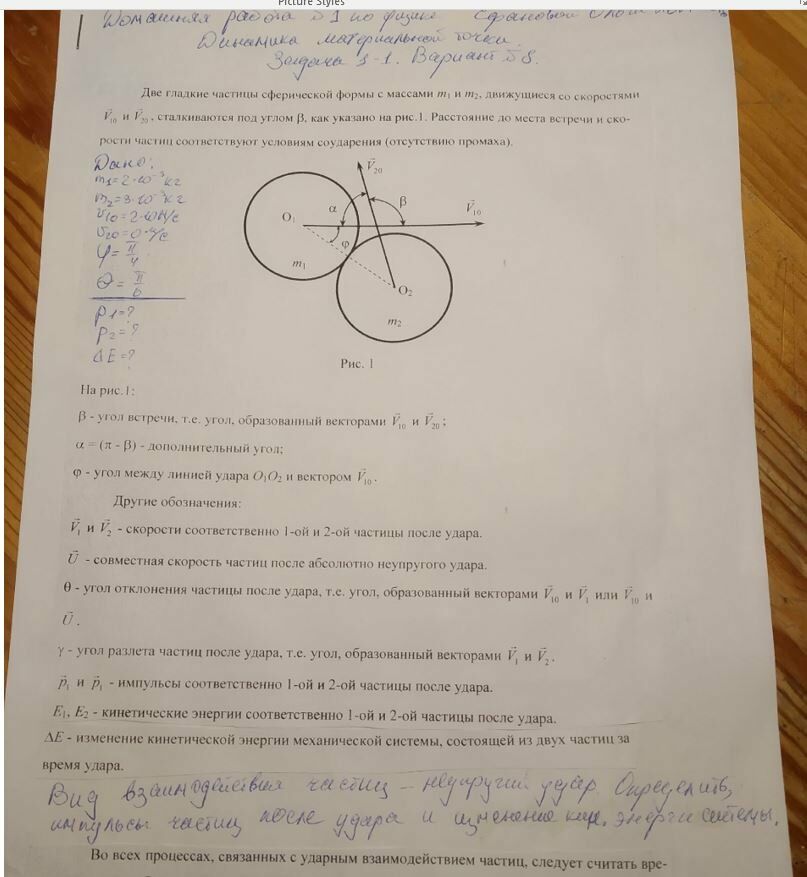 Picture Styles
Домашняя работа №1 по физике
Динамика материальной точки.
Задача 1-1. Вариант №8.
Две гладкие частицы сферической формы с массами m₁ и m₂, движущиеся со скоростями
V⃗₁₀ и V⃗₂₀, сталкиваются под углом β, как указано на рис.1. Расстояние до места встречи и ско-
рости частиц соответствуют условиям соударения (отсутствию промаха).
Дано:
m₁=2·10⁻³кг
m₂=3·10⁻³кг
υ₁₀=2·10м/с
υ₂₀=0 м/с
φ=π/4
θ=π/6
p1=?
p2=?
ΔE=?
V⃗₂₀
α
β
V⃗₁₀
O₁
φ
m₁
O₂
m₂
Рис. 1
На рис.1:
β - угол встречи, т.е. угол, образованный векторами V⃗₁₀ и V⃗₂₀;
α = (π - β) - дополнительный угол;
φ - угол между линией удара O₁O₂ и вектором V⃗₁₀.
Другие обозначения:
V⃗₁ и V⃗₂ - скорости соответственно 1-ой и 2-ой частицы после удара.
U⃗ - совместная скорость частиц после абсолютно неупругого удара.
θ - угол отклонения частицы после удара, т.е. угол, образованный векторами V⃗₁₀ и V⃗₁ или V⃗₁₀ и
U⃗.
γ - угол разлета частиц после удара, т.е. угол, образованный векторами V⃗₁ и V⃗₂.
p⃗₁ и p⃗₁ - импульсы соответственно 1-ой и 2-ой частицы после удара.
E₁, E₂ - кинетические энергии соответственно 1-ой и 2-ой частицы после удара.
ΔE - изменение кинетической энергии механической системы, состоящей из двух частиц за
время удара.
Вид взаимодействия частиц – неупругий удар. Определить,
импульсы частиц после удара и изменение кин. энерги системы.
Во всех процессах, связанных с ударным взаимодействием частиц, следует считать вре-